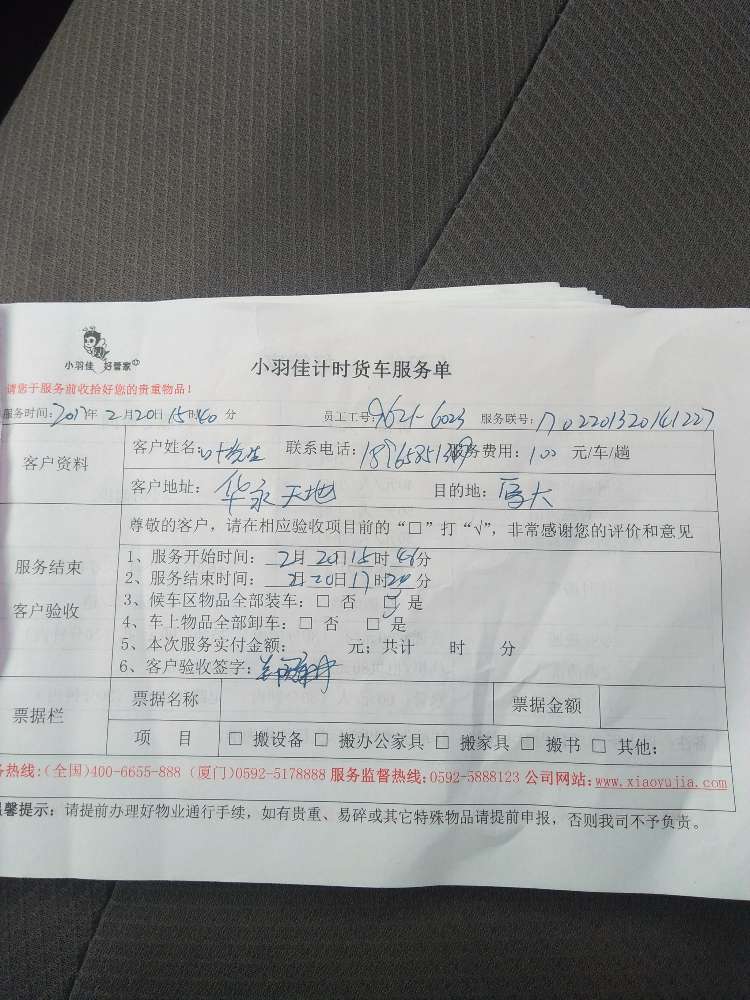 小羽佳 好管家
小羽佳计时货车服务单
请您于服务前收拾好您的贵重物品！
服务时间：2017年 2月20日15时40分 员工工号：9621-6023 服务联号：
客户资料
客户姓名： 联系电话： 服务费用：100 元/车/趟
客户地址：华永天地 目的地：厦大
尊敬的客户，请在相应验收项目前的“□”打“√”，非常感谢您的评价和意见
服务结束
客户验收
1、服务开始时间：2月20日15时46分
2、服务结束时间：2月20日17时20分
3、候车区物品全部装车：□ 否 □ 是
4、车上物品全部卸车：□ 否 □ 是
5、本次服务实付金额： 元；共计 时 分
6、客户验收签字：
票据栏
票据名称 票据金额
项 目 □ 搬设备 □ 搬办公家具 □ 搬家具 □ 搬书 □ 其他：
务热线：(全国)400-6655-888 (厦门)0592-5178888 服务监督热线：0592-5888123 公司网站：www.xiaoyujia.com
温馨提示：请提前办理好物业通行手续，如有贵重、易碎或其它特殊物品请提前申报，否则我司不予负责。